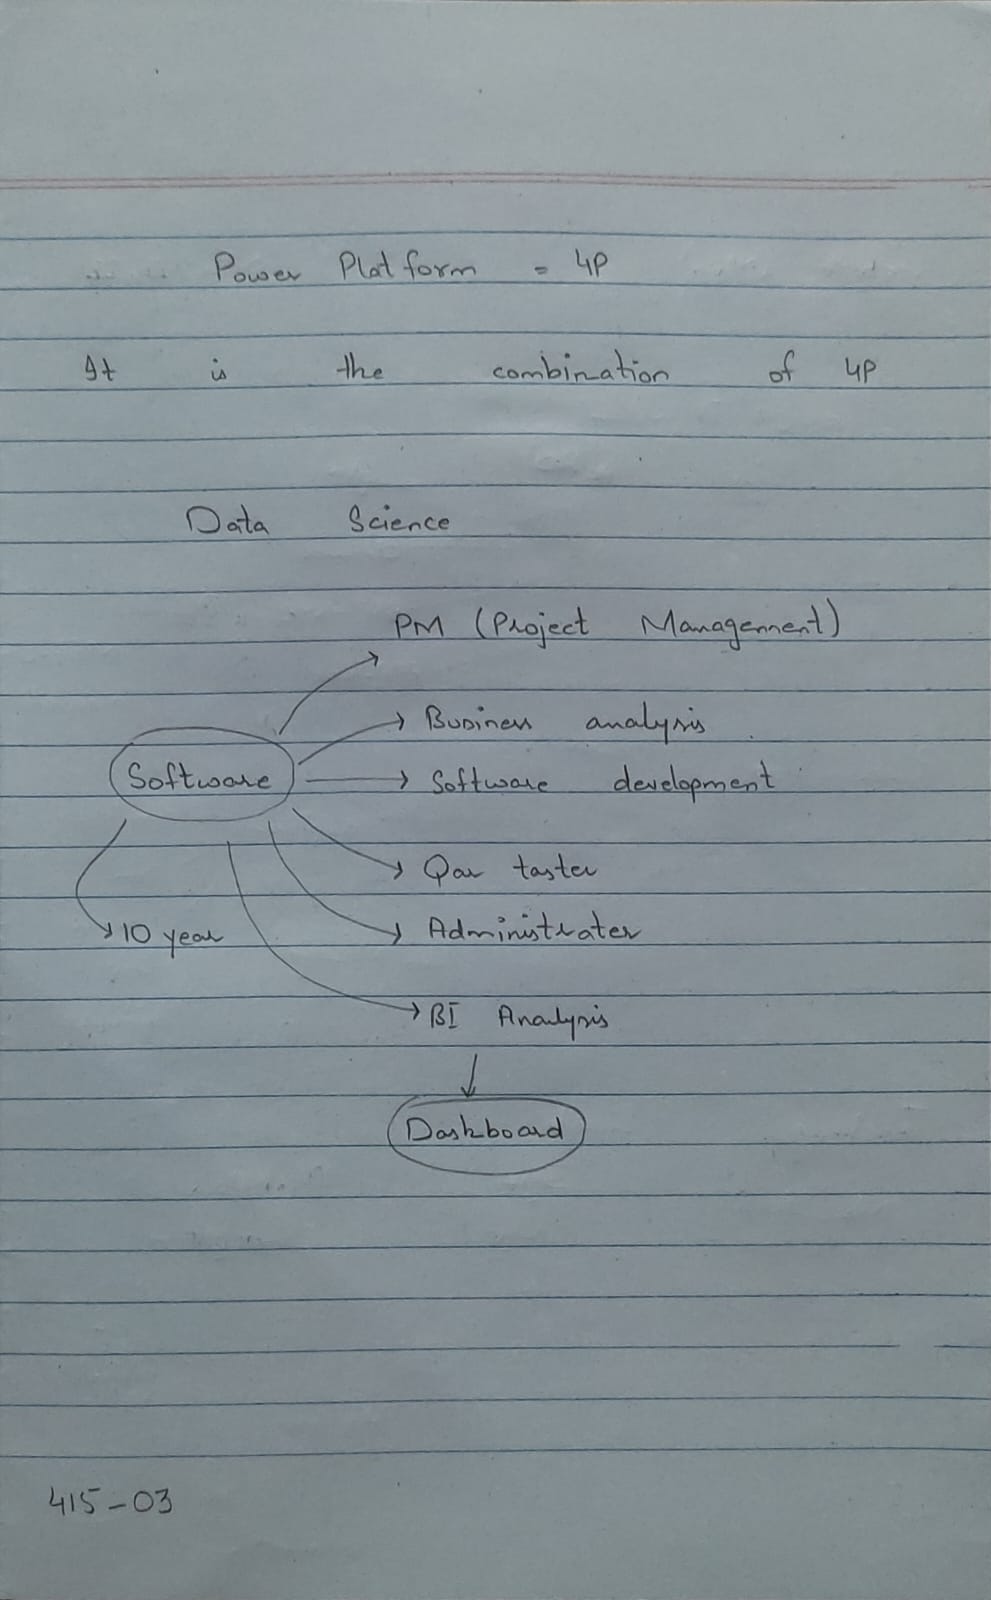 Power Platform = 4P
It is the combination of 4P
Data Science
PM (Project Management)
Business analysis
Software
Software development
Qar taster
Administrater
10 year
BI Analysis
Dashboard
415-03